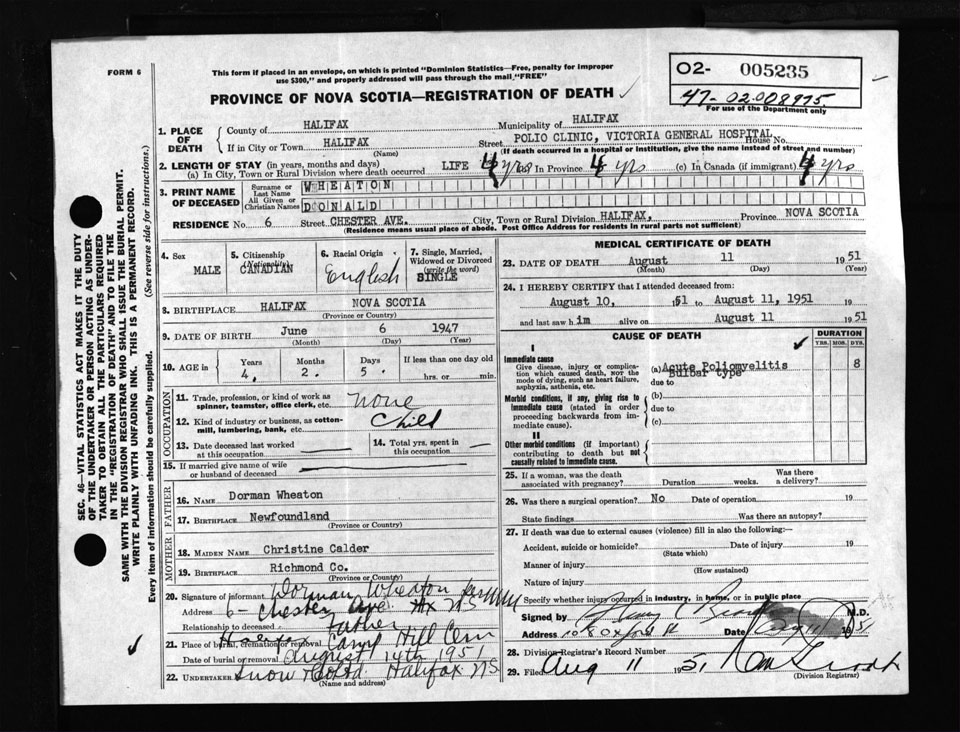 FORM 6
This form if placed in an envelope, on which is printed "Dominion Statistics—Free, penalty for improper
use $300," and properly addressed will pass through the mail "FREE"
PROVINCE OF NOVA SCOTIA—REGISTRATION OF DEATH ✓
O2- 005235
47-02-008975
For use of the Department only
1. PLACE OF DEATH
County of HALIFAX Municipality of HALIFAX
If in City or Town HALIFAX Street POLIO CLINIC, VICTORIA GENERAL HOSPITAL House No.
(Name) (If death occurred in a hospital or institution, give the name instead of street and number)
2. LENGTH OF STAY (in years, months and days)
(a) In City, Town or Rural Division where death occurred LIFE 4 yrs In Province 4 yrs (c) In Canada (if immigrant) 4 yrs
3. PRINT NAME OF DECEASED
Surname or Last Name WHEATON
All Given or Christian Names DONALD
RESIDENCE No. 6 Street CHESTER AVE. City, Town or Rural Division HALIFAX, Province NOVA SCOTIA
(Residence means usual place of abode. Post Office Address for residents in rural parts not sufficient)
4. Sex MALE
5. Citizenship (Nationality) CANADIAN
6. Racial Origin English
7. Single, Married, Widowed or Divorced (write the word) SINGLE
8. BIRTHPLACE HALIFAX NOVA SCOTIA
(Province or Country)
9. DATE OF BIRTH June 6 1947
(Month) (Day) (Year)
10. AGE in Years 4. Months 2. Days 5. If less than one day old hrs. or min.
OCCUPATION
11. Trade, profession, or kind of work as spinner, teamster, office clerk, etc. none
12. Kind of industry or business, as cotton-mill, lumbering, bank, etc. Child
13. Date deceased last worked at this occupation
14. Total yrs. spent in this occupation
15. If married give name of wife or husband of deceased
FATHER
16. NAME Dorman Wheaton
17. BIRTHPLACE Newfoundland
(Province or Country)
MOTHER
18. MAIDEN NAME Christine Calder
19. BIRTHPLACE Richmond Co.
(Province or Country)
20. Signature of informant Dorman Wheaton
Address 6- Chester Ave. Hx N.S
Relationship to deceased Father
21. Place of burial, cremation or removal Halifax Camp Hill Cem
Date of burial or removal August 14th 1951
22. UNDERTAKER Snow & Co Ltd Halifax N.S.
(Name and address)
MEDICAL CERTIFICATE OF DEATH
23. DATE OF DEATH August 11 1951
(Month) (Day) (Year)
24. I HEREBY CERTIFY that I attended deceased from:
August 10, 51 to August 11, 1951 19
and last saw him alive on August 11 1951
CAUSE OF DEATH
DURATION
YRS. MOS. DYS.
I
Immediate cause
Give disease, injury or complication which caused death, NOT the mode of dying, such as heart failure, asphyxia, asthenia, etc.
(a) Acute Poliomyelitis 8
Bulbar type
due to
Morbid conditions, if any, giving rise to immediate cause (stated in order proceeding backwards from immediate cause).
(b)
due to
(c)
II
Other morbid conditions (if important) contributing to death but not causally related to immediate cause.
25. If a woman, was the death associated with pregnancy? Duration weeks. Was there a delivery?
26. Was there a surgical operation? No Date of operation 19
State findings Was there an autopsy?
27. If death was due to external causes (violence) fill in also the following:—
Accident, suicide or homicide? Date of injury 19
(State which)
Manner of injury
(How sustained)
Nature of injury
Specify whether injury occurred in industry, in home, or in public place
Signed by M.D.
Address Date 1951
28. Division Registrar's Record Number
29. Filed Aug 11 1951
(Division Registrar)
SEC. 46—VITAL STATISTICS ACT MAKES IT THE DUTY
OF THE UNDERTAKER OR PERSON ACTING AS UNDER-
TAKER TO OBTAIN ALL THE PARTICULARS REQUIRED
IN THE "REGISTRATION OF DEATH" AND TO FILE THE
SAME WITH THE DIVISION REGISTRAR WHO SHALL ISSUE THE BURIAL PERMIT.
WRITE PLAINLY WITH UNFADING INK. THIS IS A PERMANENT RECORD.
Every item of information should be carefully supplied. (See reverse side for instructions.)